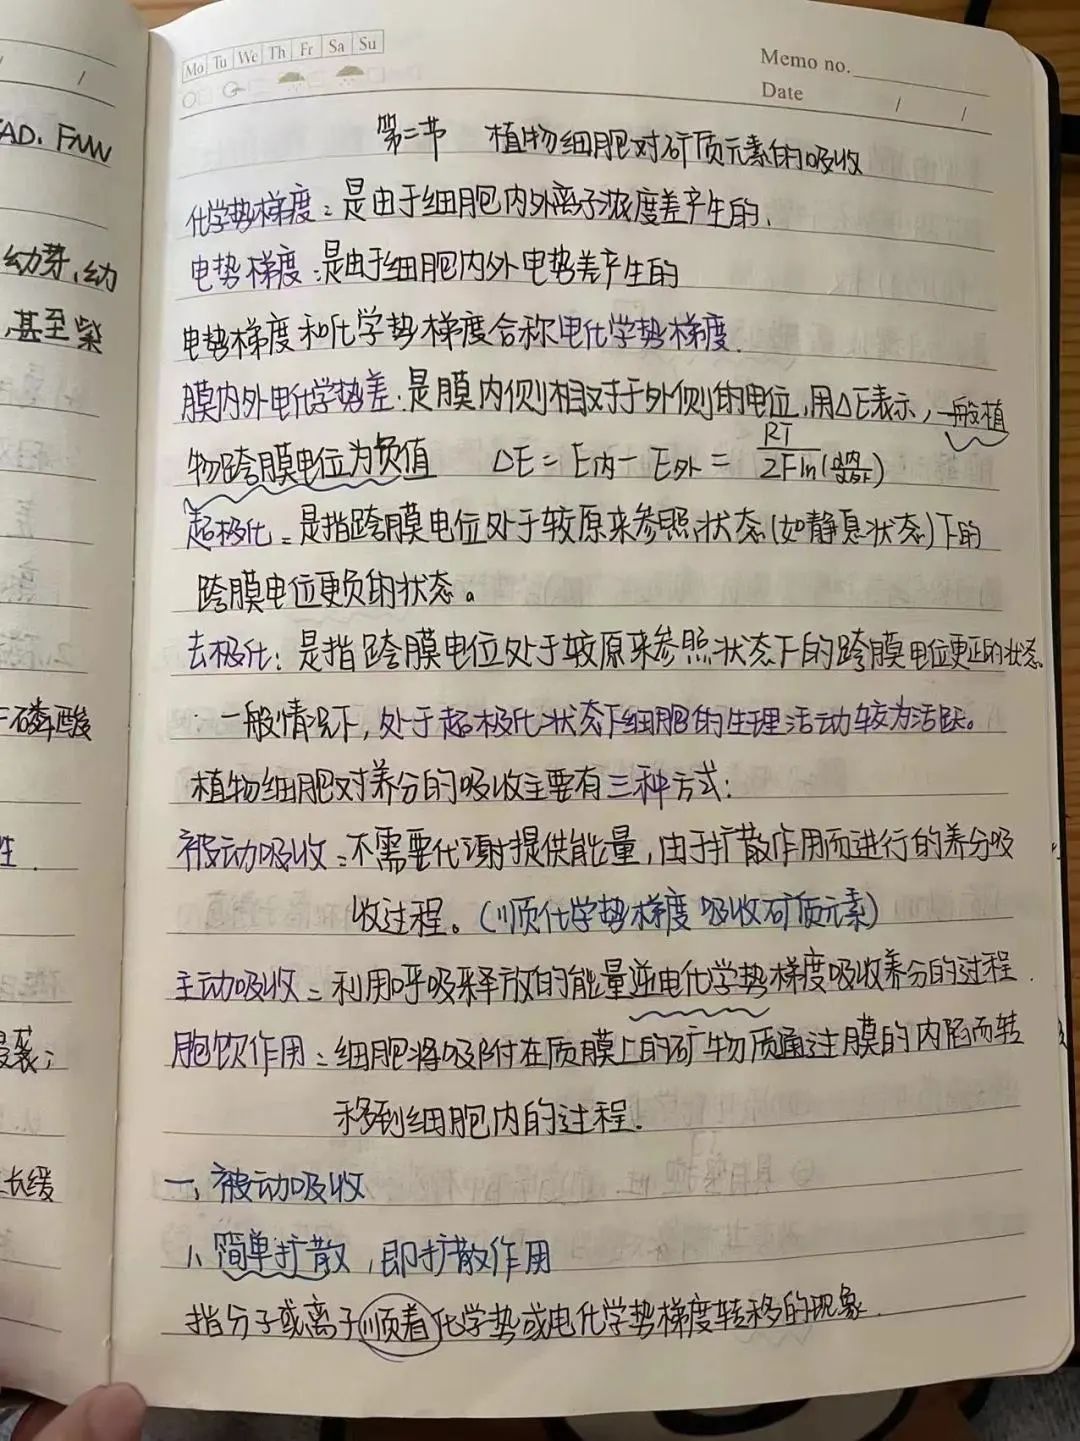 Mo Tu We Th Fr Sa Su
Memo no.
Date / /
第二节 植物细胞对矿质元素的吸收
化学势梯度:是由于细胞内外离子浓度差产生的.
电势梯度:是由于细胞内外电势差产生的
电势梯度和化学势梯度合称电化学势梯度.
膜内外电化学势差:是膜内侧相对于外侧的电位,用△E表示,一般植
物跨膜电位为负值 △E=E内-E外=RT/2Fln()
超极化:是指跨膜电位处于较原来参照状态(如静息状态)下的
跨膜电位更负的状态。
去极化:是指跨膜电位处于较原来参照状态下的跨膜电位更正的状态.
一般情况下,处于超极化状态下细胞的生理活动较为活跃。
植物细胞对养分的吸收主要有三种方式:
被动吸收:不需要代谢提供能量,由于扩散作用而进行的养分吸
收过程。(顺化学势梯度吸收矿质元素)
主动吸收:利用呼吸释放的能量逆电化学势梯度吸收养分的过程.
胞饮作用:细胞将吸附在质膜上的矿物质通过膜的内陷而转
移到细胞内的过程.
一、被动吸收
1、简单扩散,即扩散作用
指分子或离子顺着化学势或电化学势梯度转移的现象.
AD. FMN
幼芽、幼
,甚至柴
磷酸
性.
长缓